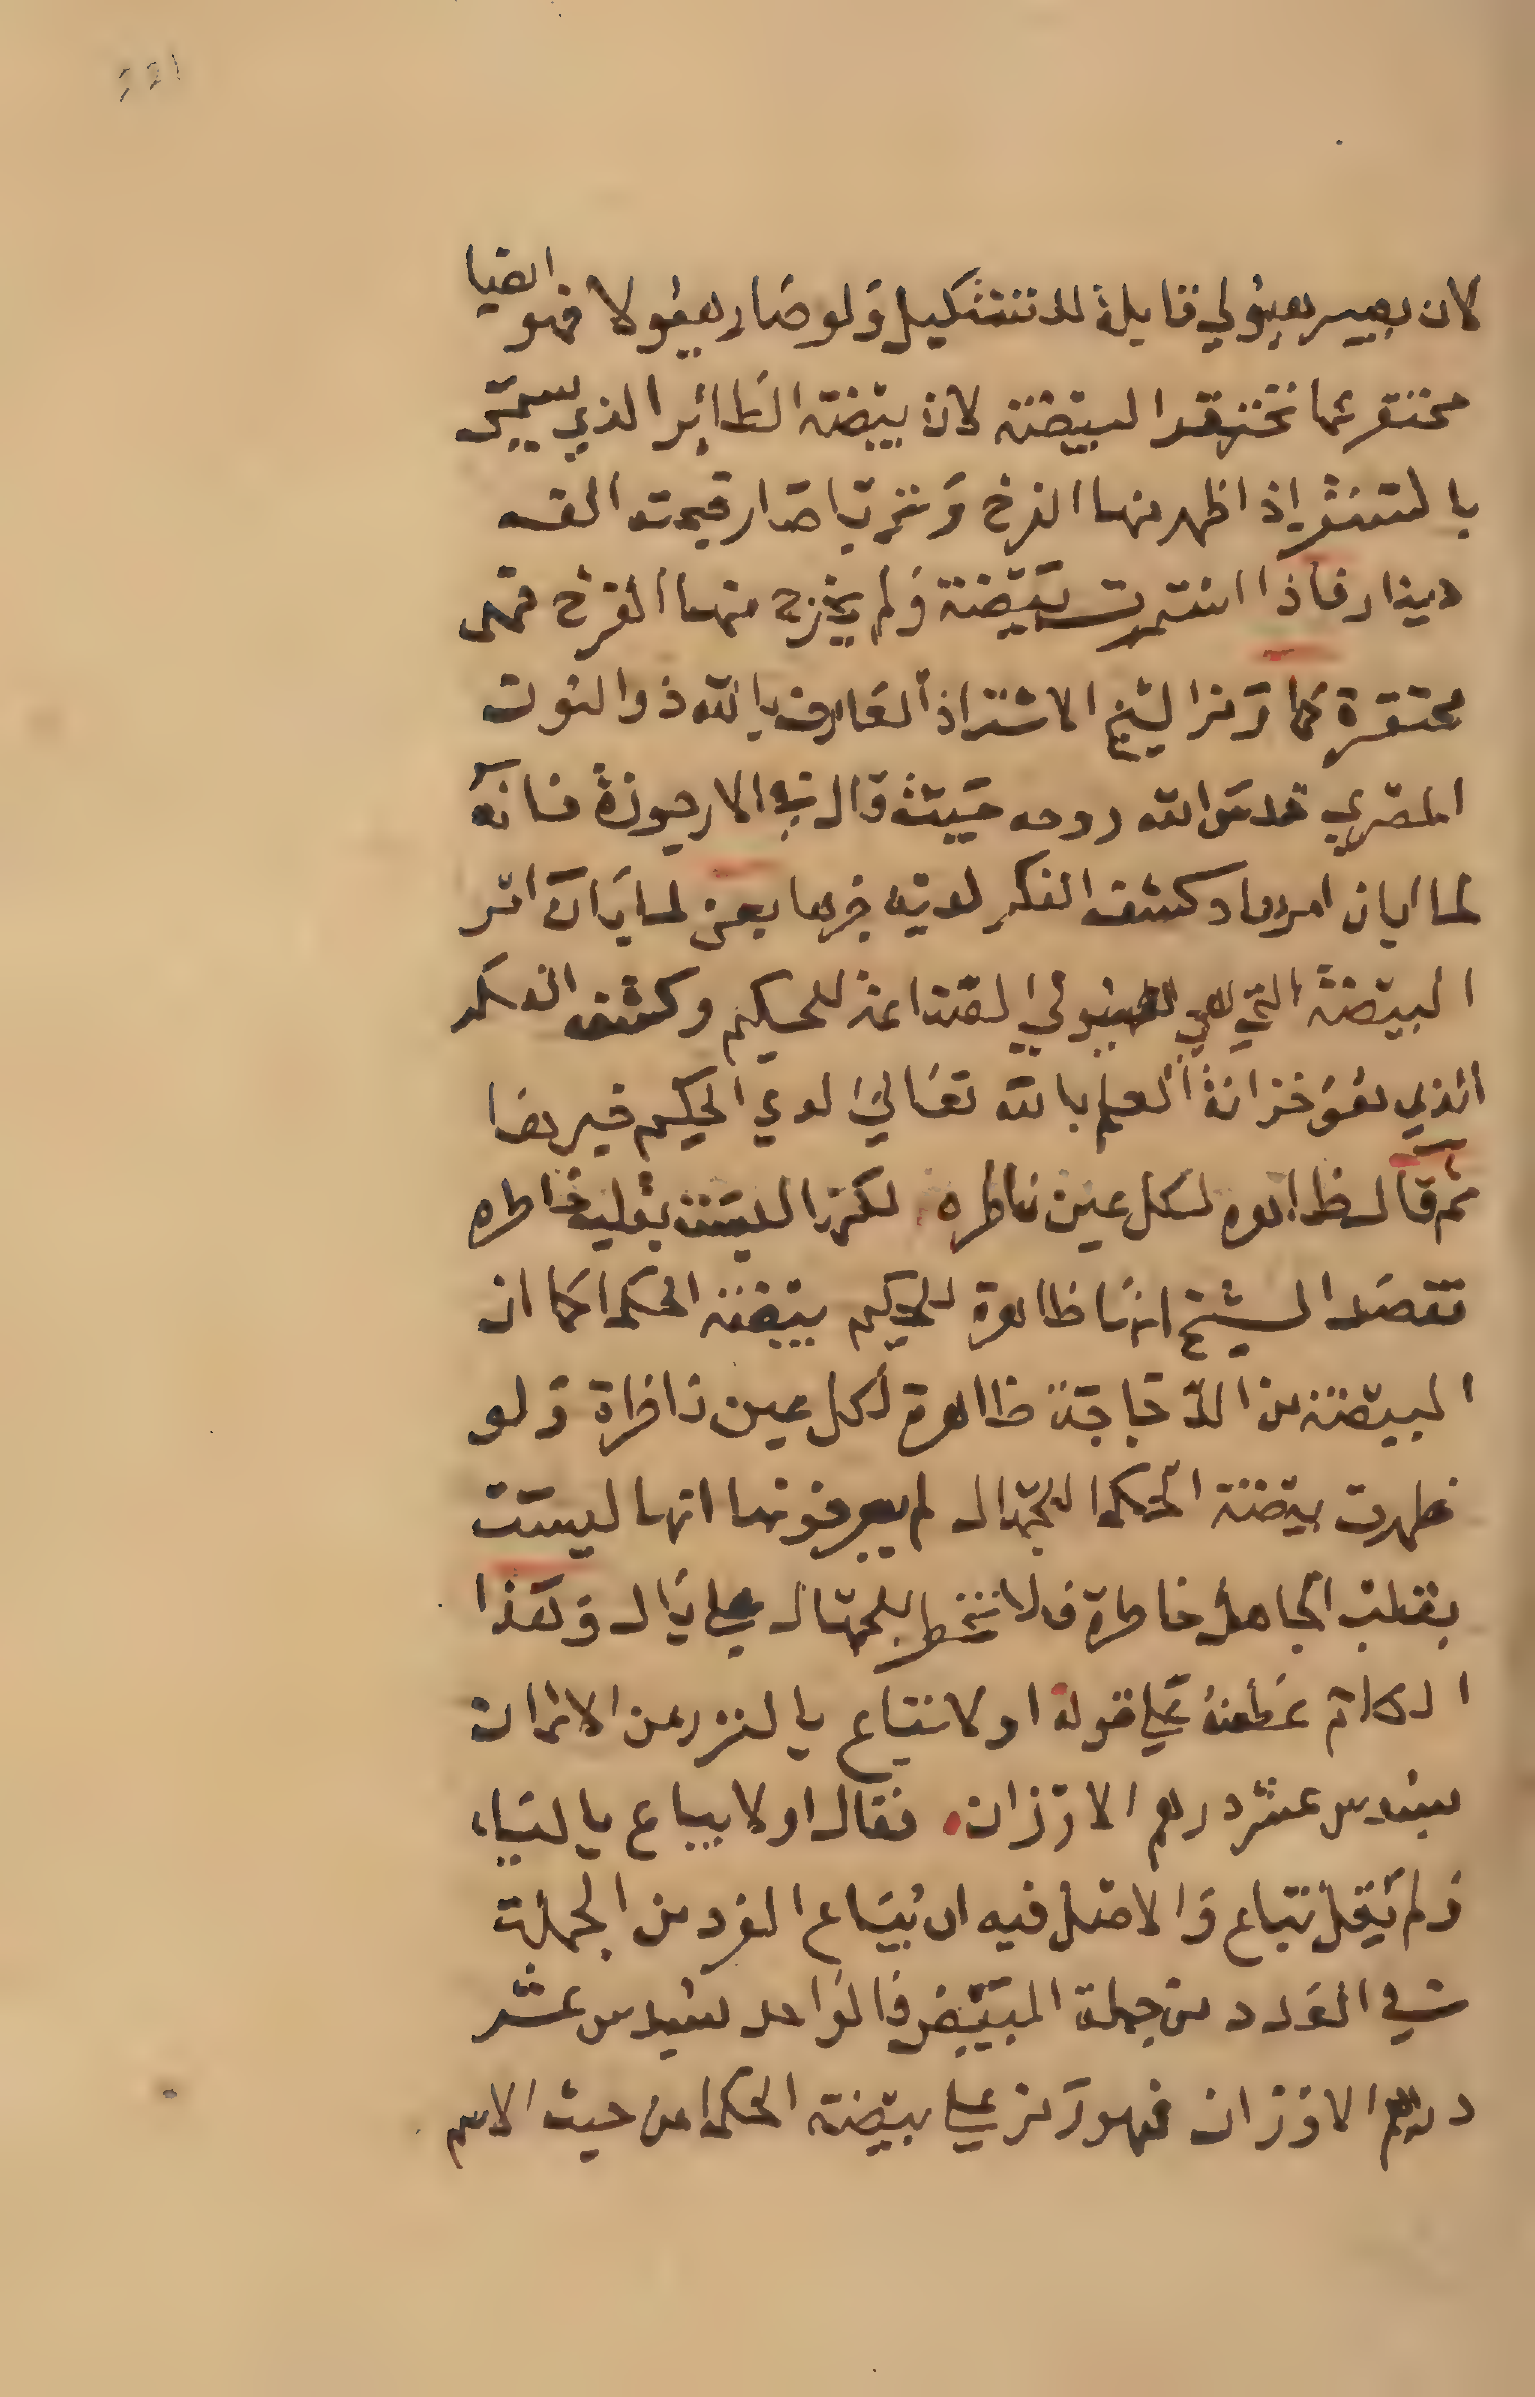 كان يصير هيولي قابلة للتشكيل ولو صار هيولا فهو ايضا
محتقر كما تحتقر البيضة لان بيضة الطائر الذي يسمى
بالتنشر اذ اظهر منها الفرخ وتربا صار قيمته الف
دينار فاذا استمرت بيضة ولم يخرج منها الفرخ فهى
محتقرة كما رمز الشيخ الاستاذ العارف بالله ذو النون
المصري قدس الله روحه حيث قال في الارجوزة فانه
لما ابان امرها وكشف الفكر لديه خبرها يعنى لما بان امر
البيضة التي هي الهيولي الصناعة للحكيم وكشف الفكر
الذي هو خزانة العلم بالله تعالي لدي الحكيم خبرها
ثم قال ظاهره لكل عين ناظره لكنها ليست بقلب خاطره
فقصد الشيخ انها ظاهرة للحكيم بيضة الحكما كما ان
البيضة من الدجاجة ظاهرة لكل عين ناظرة ولو
ظهرت بيضة الحكما للجهال لم يعرفونها انها ليست
بقلب الجاهل خاطرة فلا تخطر للجهال علي بال وهذا
الكلام عطفه علي قوله اولا تباع بالنزر من الاثمان
بسدس عشر درهم الاوزان فقال اولا يباع بالياء
ولم يقل تباع والاصل فيه ان يباع الفرد من الجملة
في العدد من جملة البيض فالواحد بسدس عشر
درهم الاوزان فهو رمز علي بيضة الحكما من حيث الاسم